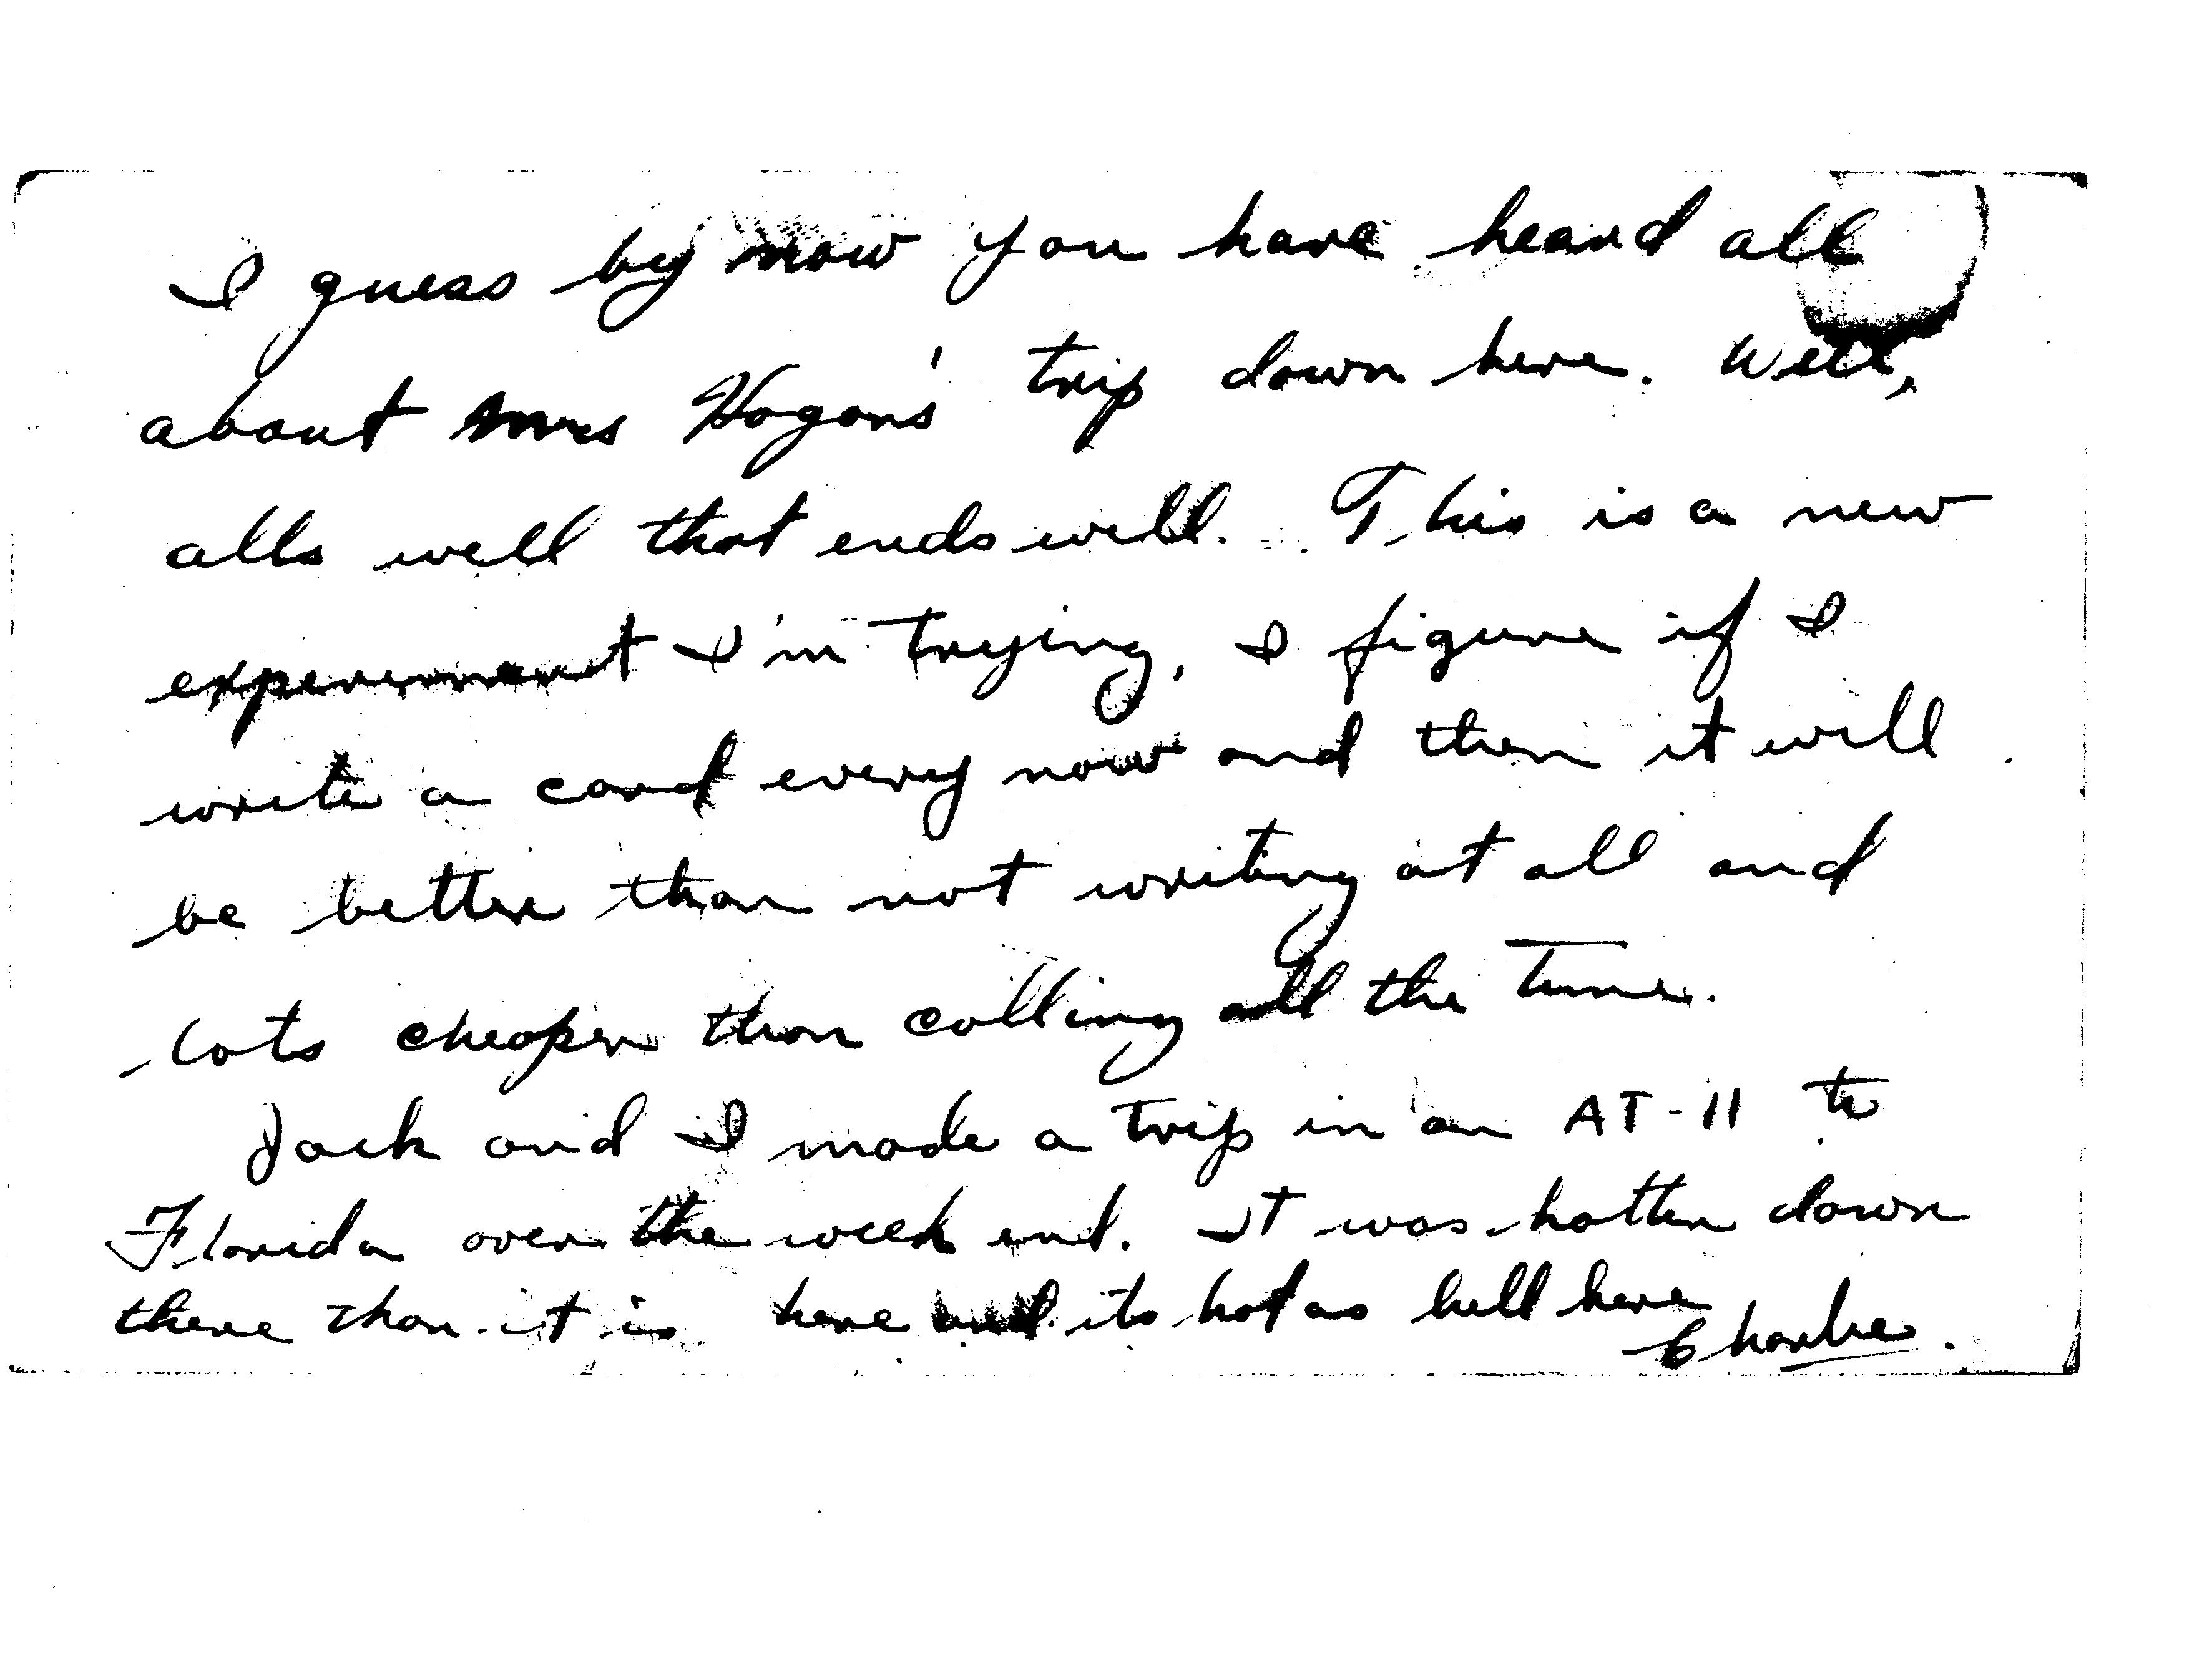 I guess by now you have heard all
about Mrs Hogans' trip down here. Well,
alls well that ends well. This is a new
experiment I'm trying, I figure if I
write a card every now and then it will
be better than not writing at all and
lots cheaper than calling all the time.
Jack and I made a trip in an AT-11 to
Florida over the week end. It was hotter down
there than it is here and its hot as hell here
Charlie.